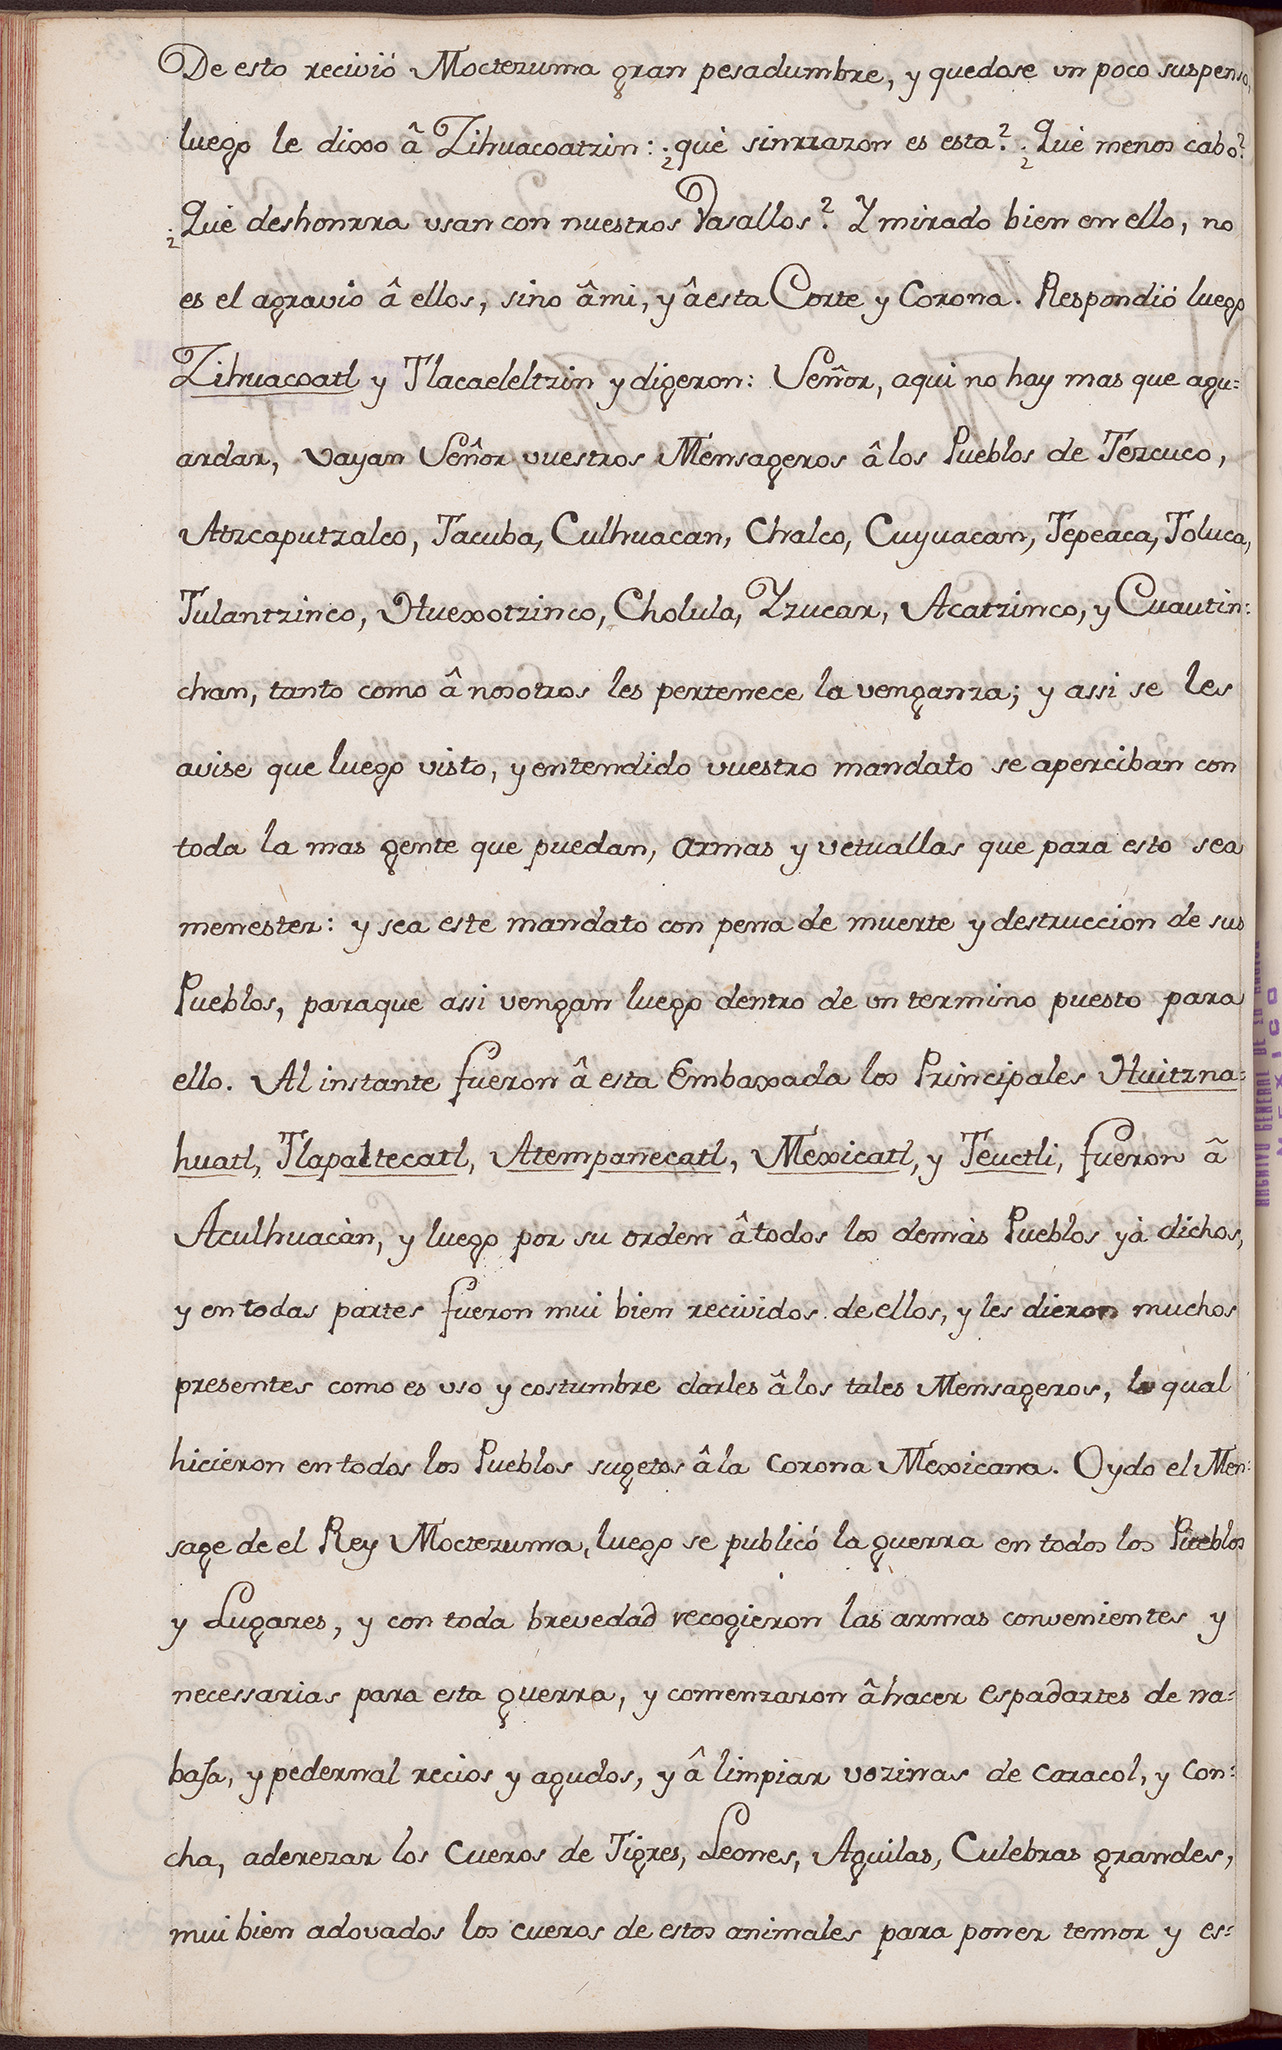 De esto recivió Moctezuma gran pesadumbre, y quedose un poco suspenso,
luego le dixo â Zihuacoatzin: ¿què sinrrazon es esta? ¿Què menos cabo?
¿Què deshonrra usan con nuestros Vasallos? Y mirado bien en ello, no
es el agravio â ellos, sino â mi, y â esta Corte y Corona. Respondió luego
Zihuacoatl y Tlacaeleltzin y digeron: Señor, aqui no hay mas que agu=
ardar, vayan Señor vuestros Mensageros â los Pueblos de Tezcuco,
Atzcaputzalco, Tacuba, Culhuacan, Chalco, Cuyuacan, Tepeaca, Toluca,
Tulantzinco, Huexotzinco, Cholula, Yzucar, Acatzinco, y Cuautin=
chan, tanto como â nosotros les pertenece la venganza; y assi se les
avise que luego visto, y entendido vuestro mandato se aperciban con
toda la mas gente que puedan, armas y vetuallas que para esto sea
menester: y sea este mandato con pena de muerte y destruccion de sus
Pueblos, paraque assi vengan luego dentro de un termino puesto para
ello. Al instante fueron â esta Embaxada los Principales Huitzna=
huatl, Tlapaltecatl, Atempanecatl, Mexicatl, y Teuctli, fueron â
Aculhuacàn, y luego por su orden â todos los demàs Pueblos yà dichos,
y en todas partes fueron mui bien recividos de ellos, y les dieron muchos
presentes como es uso y costumbre darles â los tales Mensageros, lo qual
hicieron en todos los Pueblos sugetos â la Corona Mexicana. Oydo el Men=
sage de el Rey Moctezuma, luego se publicó la guerra en todos los Pueblos
y Lugares, y con toda brevedad recogieron las armas convenientes y
necessarias para esta guerra, y comenzaron â hacer espadartes de na=
baja, y pedernal recios y agudos, y â limpiar vozinas de caracol, y con=
cha, aderezar los Cueros de Tigres, Leones, Aguilas, Culebras grandes,
mui bien adovados los cueros de estos animales para poner temor y es=
ARCHIVO GENERAL DE LA NACION
MEXICO